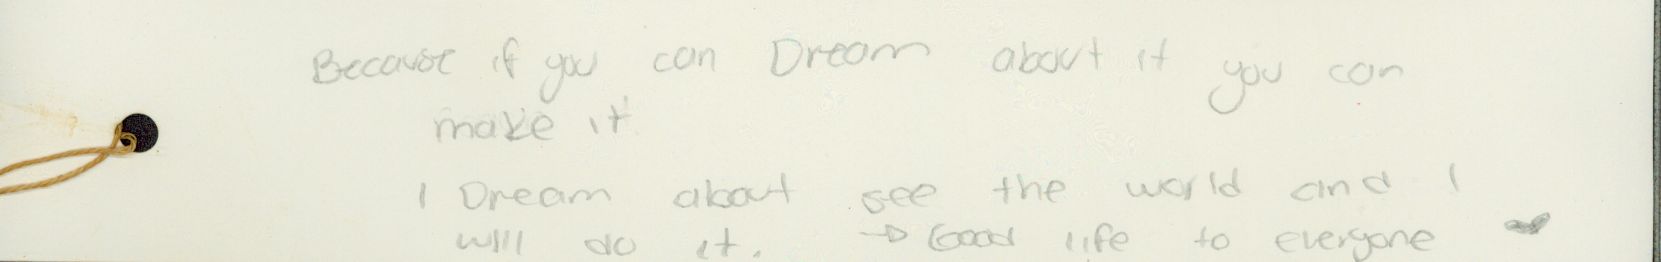 Because if you can Dream about it you can
make it
I Dream about see the world and I
will do it. → Good life to everyone ♥